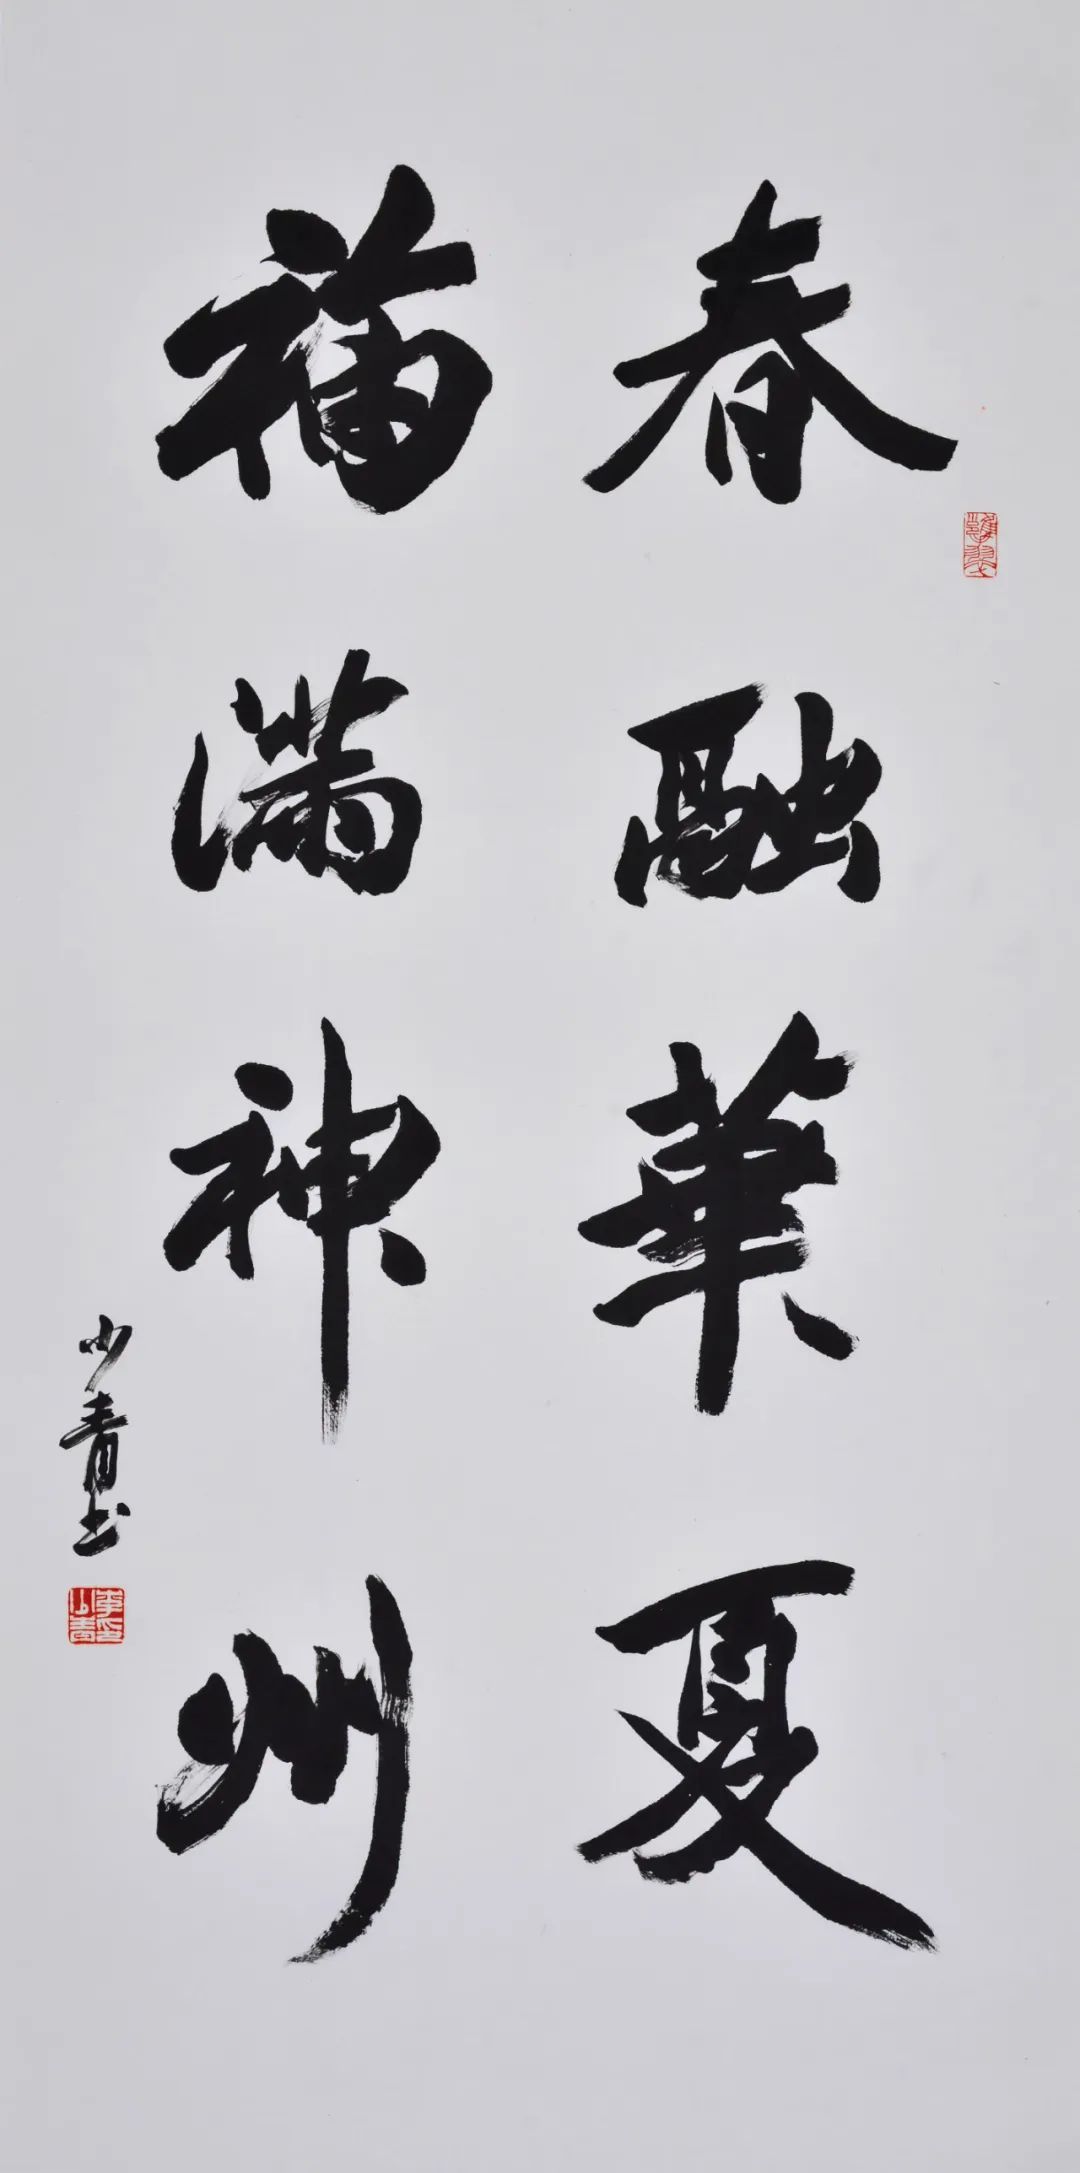 春融華夏
福满神州
少青书